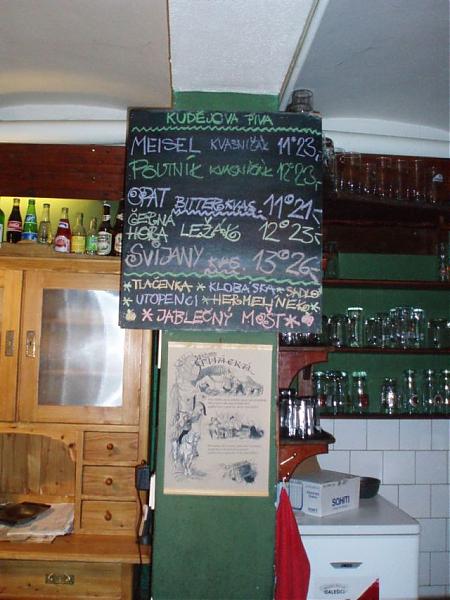 KUDĚJOVA PIVA
MEISEL KVASNIČÁK 11° 23,-
POUTNÍK KVASNIČÁK 12° 23,-
OPAT BITTER KVAS. 11° 21,-
ČERNÁ HORA LEŽÁK 12° 23,-
SVIJANY KVAS. 13° 26,-
* TLAČENKA * KLOBÁSKA * SÁDLO
* UTOPENCI * HERMELÍNEK *
* JABLEČNÝ MOŠT *
SOHITI